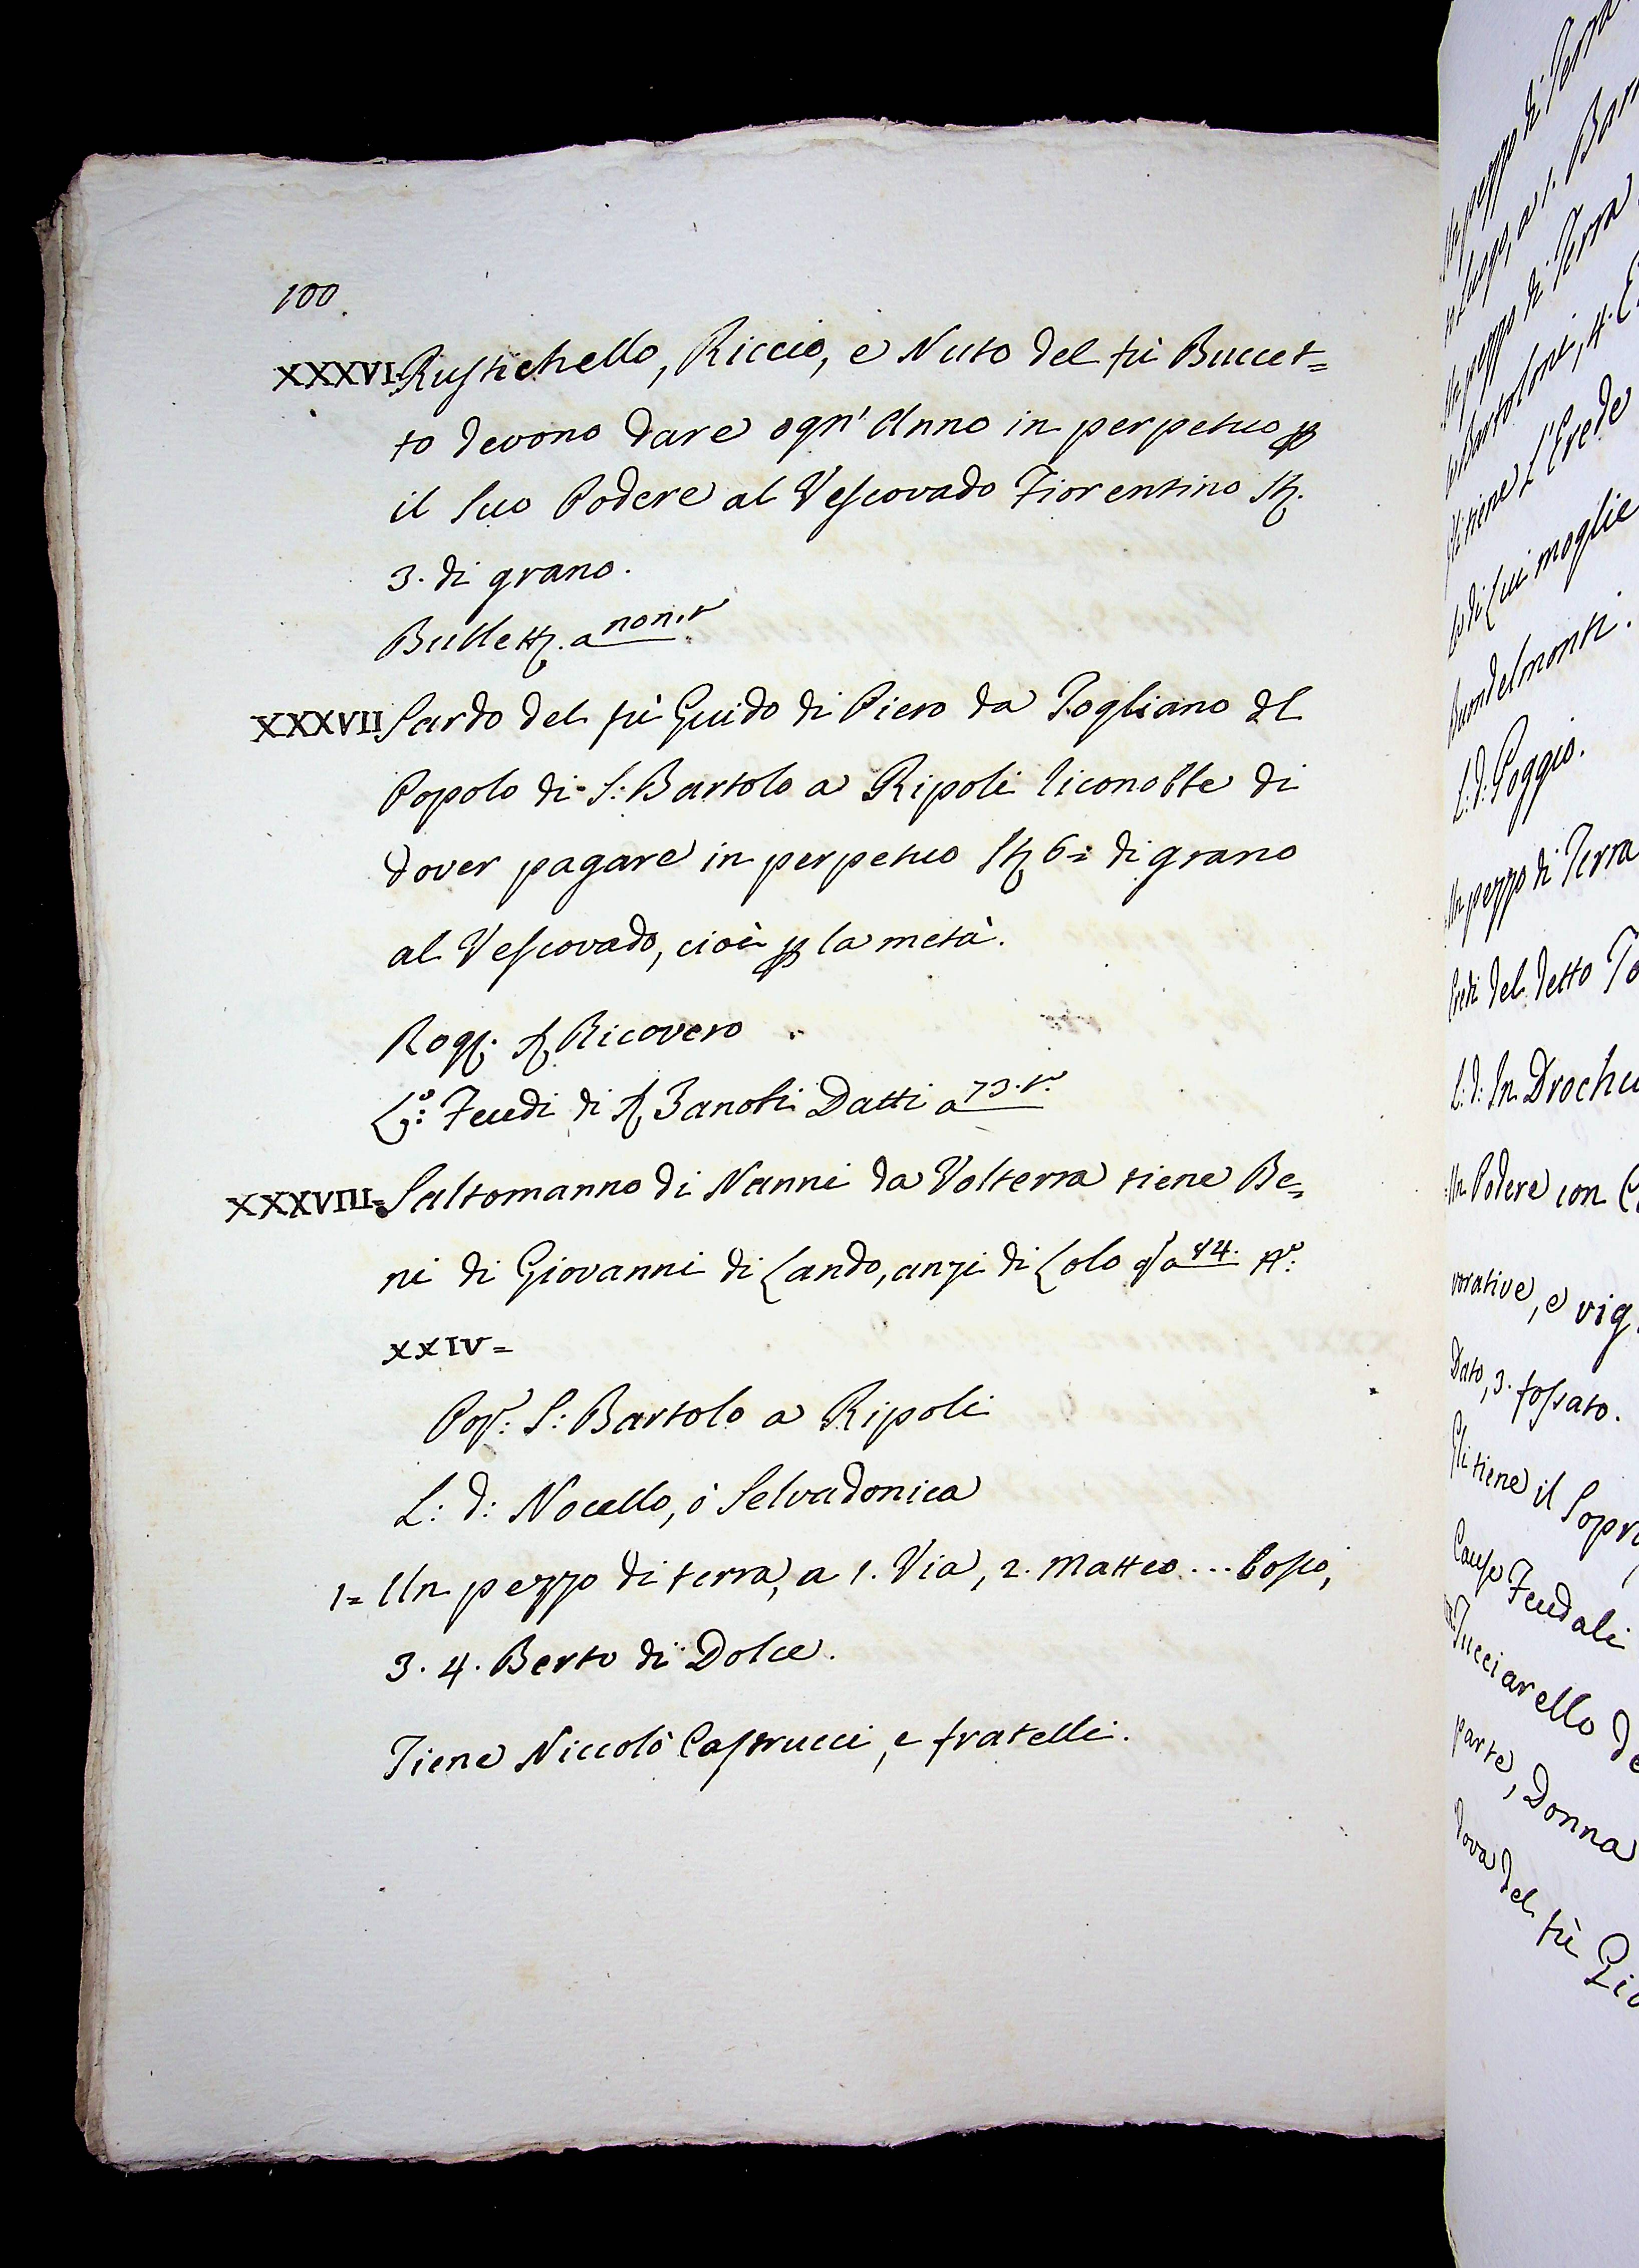 100.
XXXVI= Rustichello, Riccio, e Nuto del fù Buccet=
to devono dare ogn' Anno in perpetuo p
il suo Podere al Vescovado Fiorentino St.
3. di grano.
Bullett. a non. v
XXXVII Sardo del fù Guido di Piero da Togliano dl
Popolo di S: Bartolo a Ripoli si conobbe di
dover pagare in perpetuo St 6= di grano
al Vescovado, cioè p la metà.
Rog. S. Ricovero
L.º: Feudi di S. Zanobi Datti a 73. v.
XXXVIII= Saltomanno di Nanni da Volterra tiene Be=
ni di Giovanni di Lando, anzi di Lolo qª a 84. Nº:
XXIV=
Pop.: S: Bartolo a Ripoli
L: d: Nocello, ò Selvadonica
1= Un pezzo di terra, a 1. Via, 2. Matteo ... Bosco,
3. 4. Berto di Dolce.
Tiene Niccolò Castrucci, e fratelli.
Un pezzo di Terra
luogo, a 1. Bar
Un pezzo di Terra
Bartoloni, 4. E
tiene L'Erede
di lui moglie
Buondelmonti.
L: d: Poggio.
Un pezzo di Terra
Eredi del detto To
L: d: In Drochu
Un Podere con C
vorative, e vig.
Dato, 3. fossato.
Gli tiene il sopr
Cause Feudali
Tucciarello de
parte, Donna
dova del fù Gio